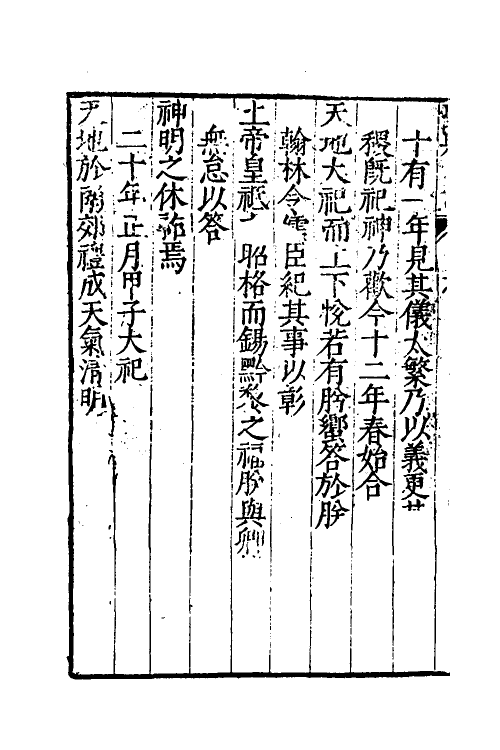 十有一年見其儀太繁乃以義更其
稷旣祀神乃歡今十二年春始合
天地大祀而上下悅若有肸蠁答於朕
翰林令 臣紀其事以彰
上帝皇祇 昭格而錫黔黎之福朕與卿
無怠以答
神明之休祐焉
二十年正月甲子大祀
天地於南郊禮成天氣清明